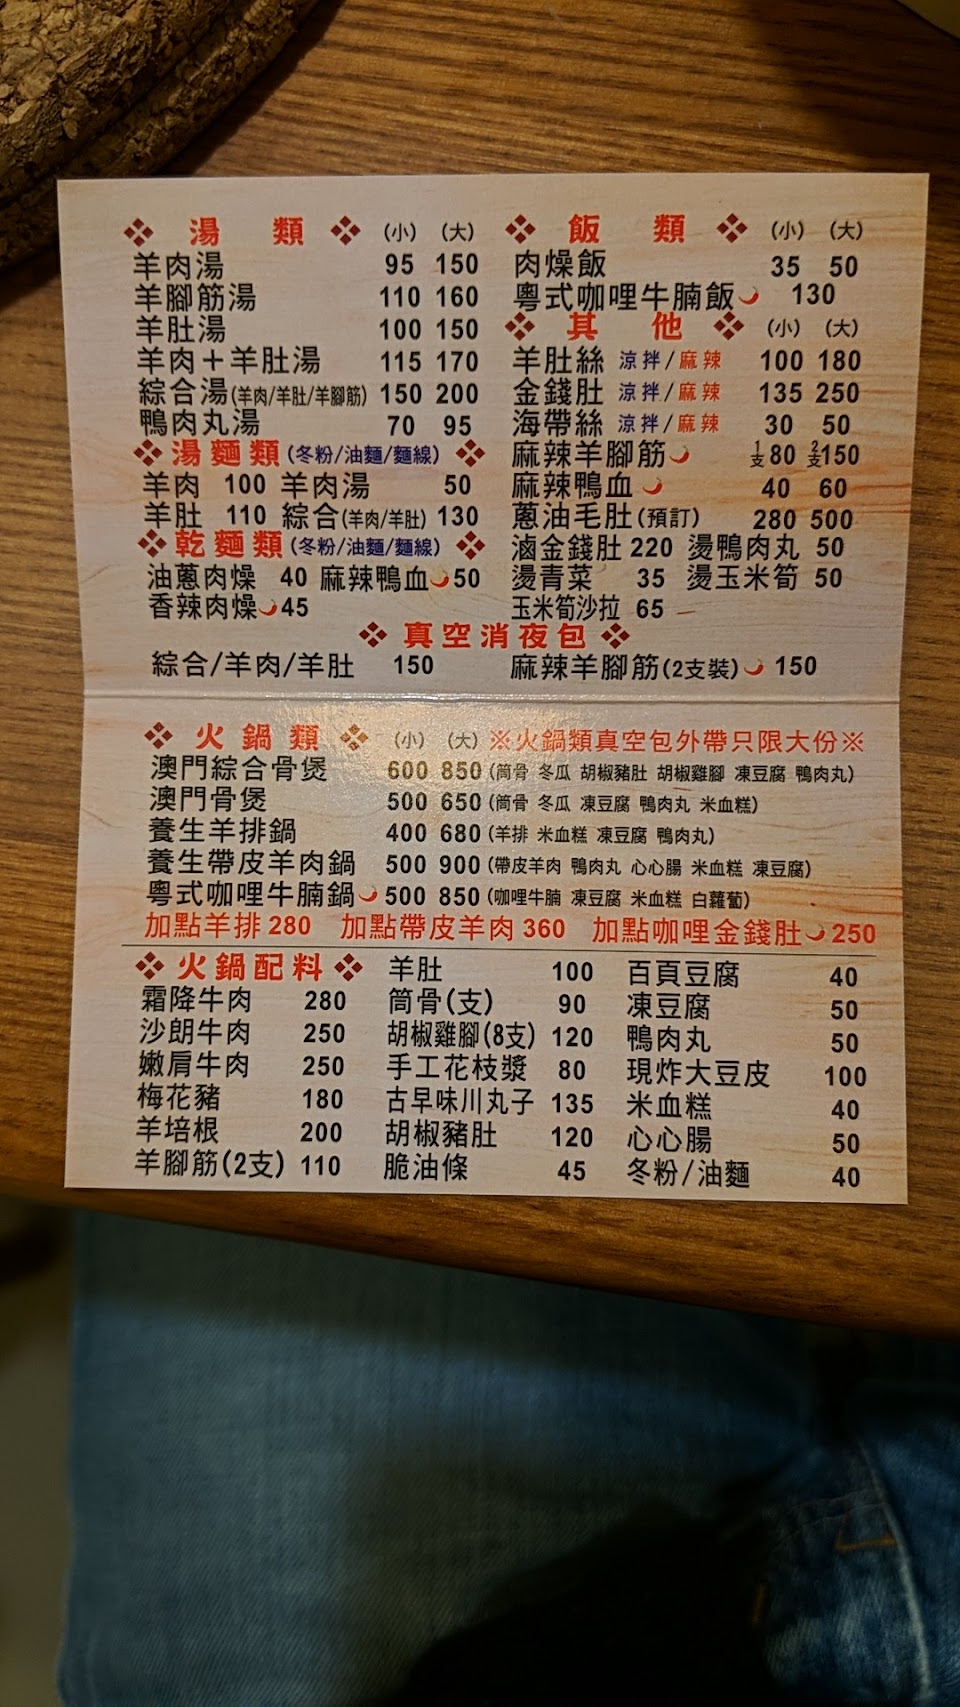 湯類 (小) (大)
羊肉湯 95 150
羊腳筋湯 110 160
羊肚湯 100 150
羊肉+羊肚湯 115 170
綜合湯(羊肉/羊肚/羊腳筋) 150 200
鴨肉丸湯 70 95
湯麵類(冬粉/油麵/麵線)
羊肉 100 羊肉湯 50
羊肚 110 綜合(羊肉/羊肚) 130
乾麵類(冬粉/油麵/麵線)
油蔥肉燥 40 麻辣鴨血 50
香辣肉燥 45
飯類 (小) (大)
肉燥飯 35 50
粵式咖哩牛腩飯 130
其他 (小) (大)
羊肚絲 涼拌/麻辣 100 180
金錢肚 涼拌/麻辣 135 250
海帶絲 涼拌/麻辣 30 50
麻辣羊腳筋 1支80 2支150
麻辣鴨血 40 60
蔥油毛肚(預訂) 280 500
滷金錢肚 220 燙鴨肉丸 50
燙青菜 35 燙玉米筍 50
玉米筍沙拉 65
真空消夜包
綜合/羊肉/羊肚 150 麻辣羊腳筋(2支裝) 150
火鍋類 (小) (大) ※火鍋類真空包外帶只限大份※
澳門綜合骨煲 600 850 (筒骨 冬瓜 胡椒豬肚 胡椒雞腳 凍豆腐 鴨肉丸)
澳門骨煲 500 650 (筒骨 冬瓜 凍豆腐 鴨肉丸 米血糕)
養生羊排鍋 400 680 (羊排 米血糕 凍豆腐 鴨肉丸)
養生帶皮羊肉鍋 500 900 (帶皮羊肉 鴨肉丸 心心腸 米血糕 凍豆腐)
粵式咖哩牛腩鍋 500 850 (咖哩牛腩 凍豆腐 米血糕 白蘿蔔)
加點羊排280 加點帶皮羊肉360 加點咖哩金錢肚 250
火鍋配料
霜降牛肉 280
沙朗牛肉 250
嫩肩牛肉 250
梅花豬 180
羊培根 200
羊腳筋(2支) 110
羊肚 100
筒骨(支) 90
胡椒雞腳(8支) 120
手工花枝漿 80
古早味川丸子 135
胡椒豬肚 120
脆油條 45
百頁豆腐 40
凍豆腐 50
鴨肉丸 50
現炸大豆皮 100
米血糕 40
心心腸 50
冬粉/油麵 40